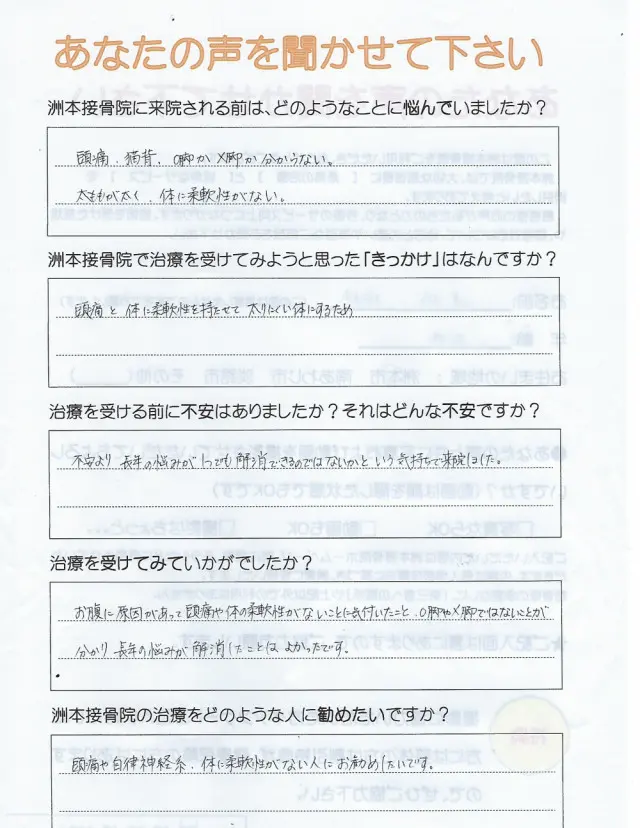 あなたの声を聞かせて下さい
洲本接骨院に来院される前は、どのようなことに悩んでいましたか？
頭痛、猫背、O脚かX脚か分からない。
太ももが太く、体に柔軟性がない。
洲本接骨院で治療を受けてみようと思った「きっかけ」はなんですか？
頭痛と体に柔軟性を持たせて太りにくい体にするため
治療を受ける前に不安はありましたか？それはどんな不安ですか？
不安より長年の悩みが1つでも解消できるのではないかという気持ちで来院しました。
治療を受けてみていかがでしたか？
お腹に原因があって頭痛や体の柔軟性がないことに気付いたこと、O脚やX脚ではないことが
分かり長年の悩みが解消したことはよかったです。
洲本接骨院の治療をどのような人に勧めたいですか？
頭痛や自律神経系、体に柔軟性がない人にお勧めしたいです。